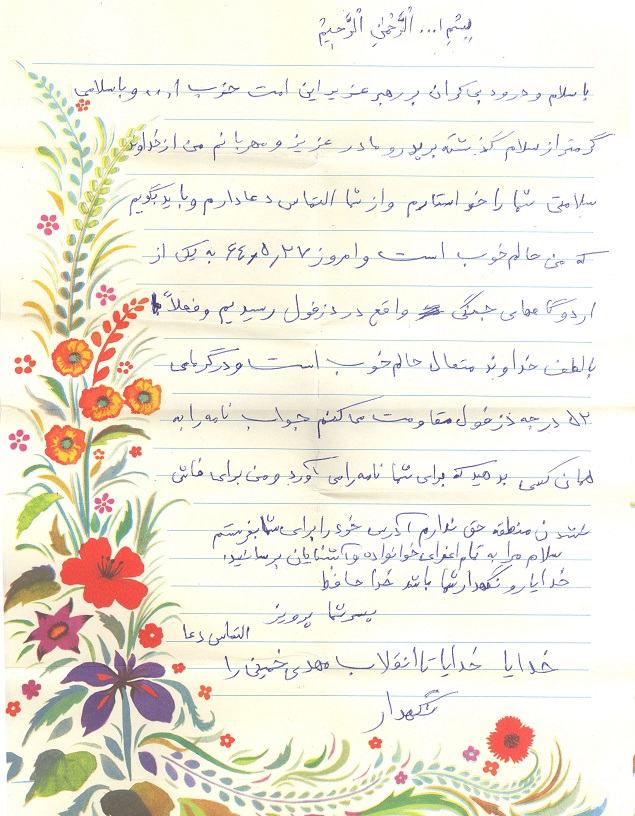 بِسْمِ ا... الرَّحْمٰنِ الرَّحیمْ
با سلام و درود بی کران بر رهبر عزیز این امت حزب ا... و با سلامی
گرمتر از سلام گذشته بر پدر و مادر عزیز و مهربانم من از خداوند
سلامتی شما را خواستارم و از شما التماس دعا دارم و باید بگویم
که من حالم خوب است و امروز ۶۴٫۵٫۲۷ به یکی از
اردوگاههای جنگی واقع در دزفول رسیدیم و فعلاً
با لطف خداوند متعال حالم خوب است و در گرمای
۵۲ درجه دزفول مقاومت می کنم جواب نامه را به
همان کسی بدهید که برای شما نامه را می آورد و من برای فاش
شدن منطقه حق ندارم آدرس خود را برای شما بفرستم
سلام مرا به تمام اعضای خوانواده و آشنایان برسانید.
خدا یار و نگهدار شما باشد خدا حافظ
پسر شما پرویز
التماس دعا
خدایا خدایا تا انقلاب مهدی خمینی را
نگهدار